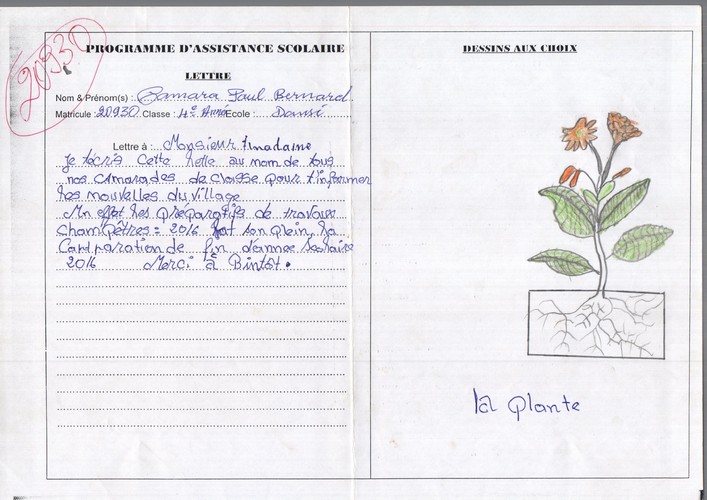 20930
PROGRAMME D'ASSISTANCE SCOLAIRE
LETTRE
Nom & Prénom(s) : Camara Paul Bernard
Matricule : 20930 Classe : 4e Année Ecole : Dansé
Lettre à : Monsieur
Je t'écris Cette au nom de tous
nos Camarades de classe pour t'informer
les nouvelles du village
En effet les préparatifs de travaux
Champêtres : 2016 bat son plein la
Comparation de fin d'année scolaire
2016 Merci à Bintôt .
DESSINS AUX CHOIX
la plante